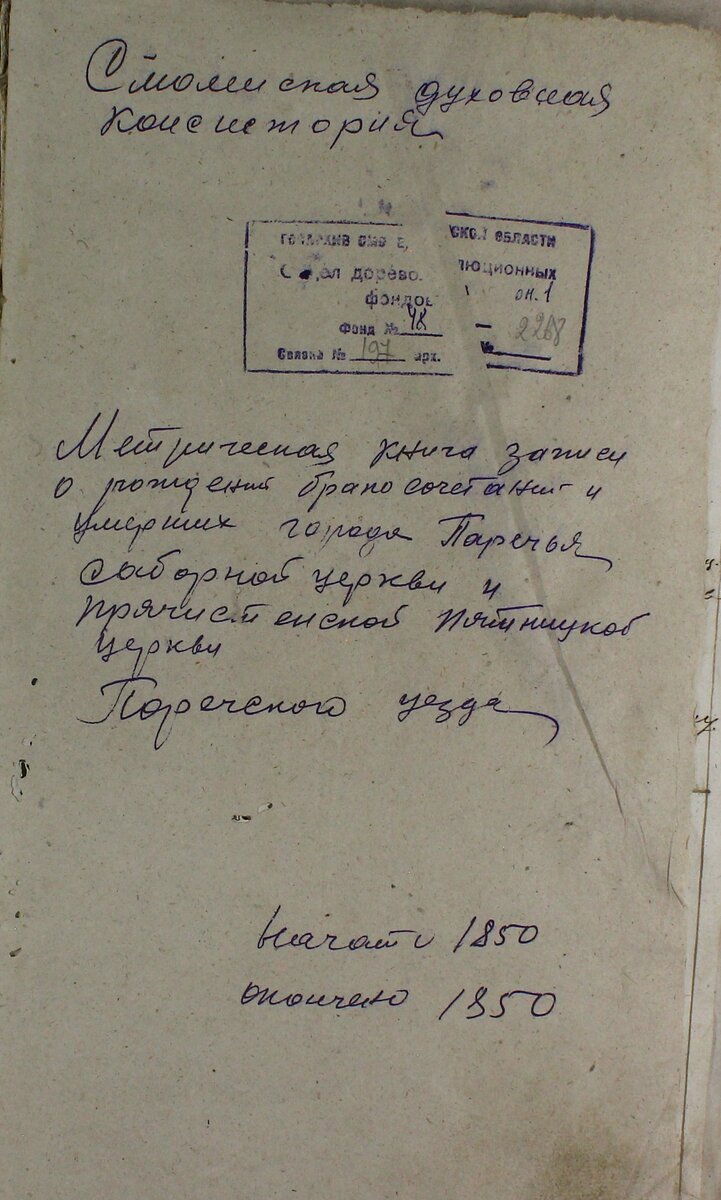 Смоленская духовная
консистория
ГОСАРХИВ СМО Е, СКОЙ ОБЛАСТИ
дел дорево люционных
фондов оп. 1
Фонд № 48 2268
Связка № 197 арх. №
Метрическая книга записи
о рождений бракосочетаний и
умерших города Паречья
саборной церкви и
пречистенской пятницкой
церкви
Поречского уезда
Начато 1850
окончено 1850